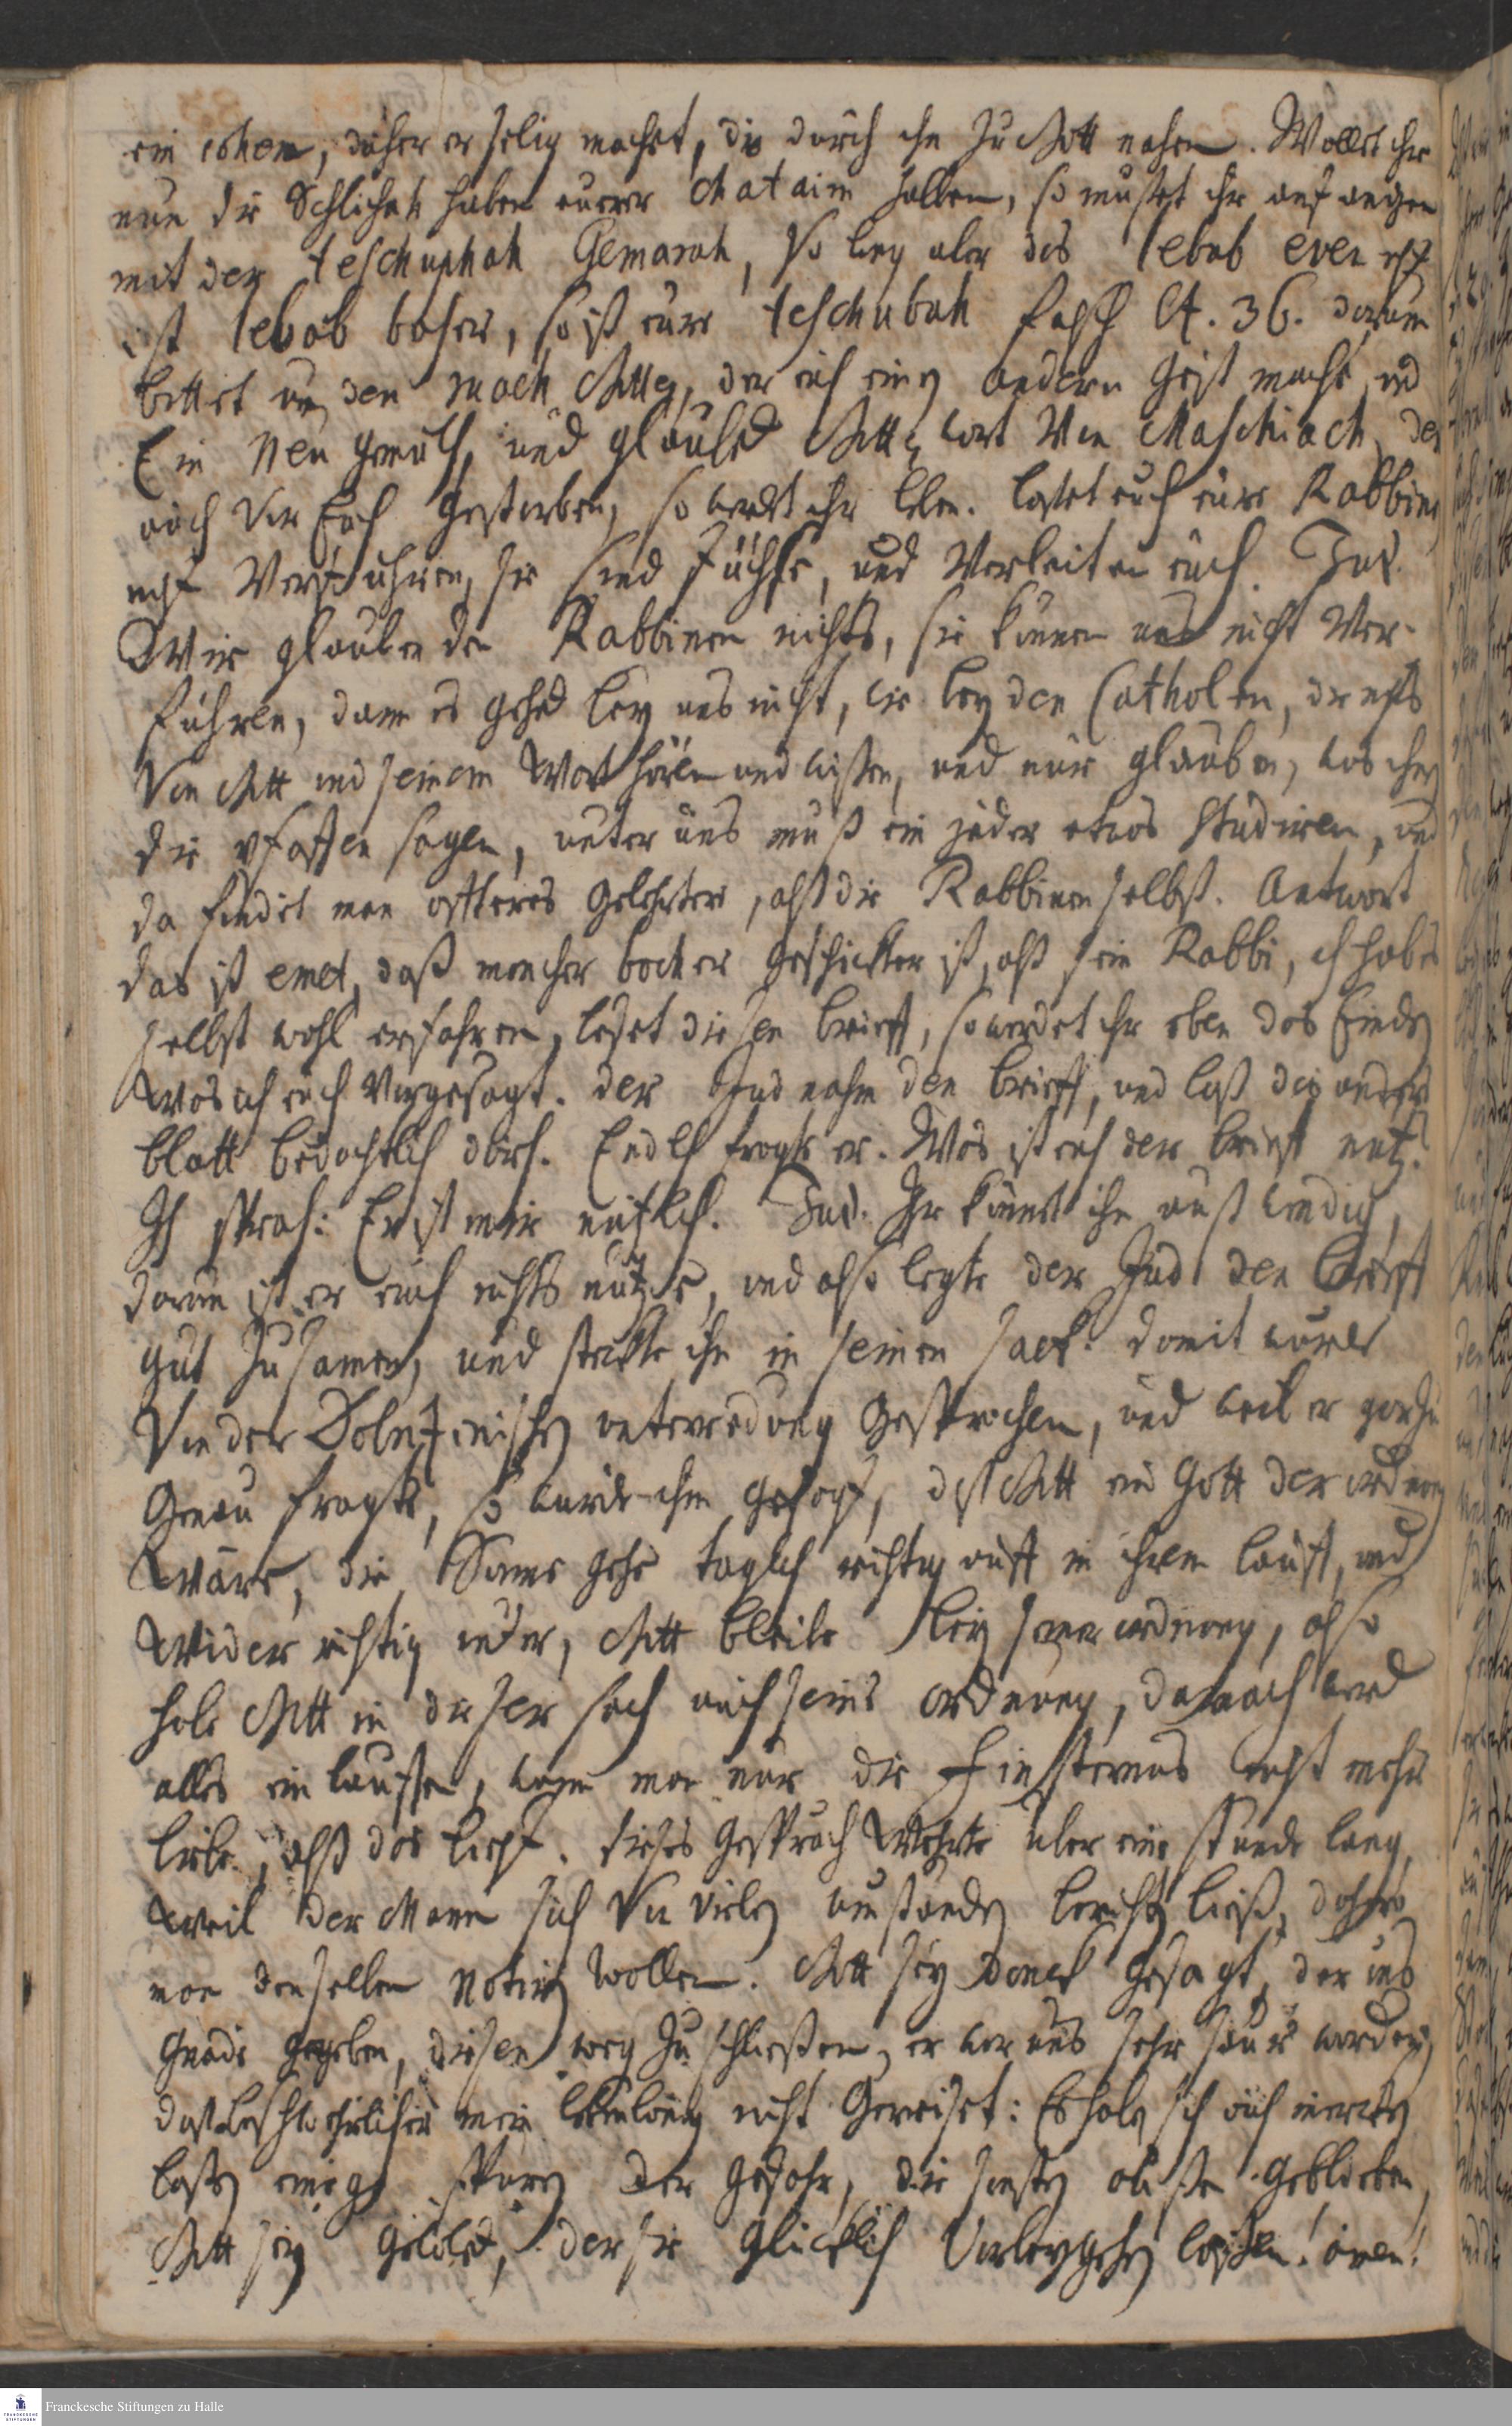 ein cohen, daher er selig machet, die durch ihn zu Gott nahen. Wollet ihr
nun die Schlichat haben eurer Chataim halben, so mußet ihr anfangen
mit der teschuphah Gemarah, so lang aber das lebab even ist
ist lebab baser, so ist eure teschubah falsch Ez. 36. darum
bittet um den ruach Gottes, der euch einen andern Geist mache, und
Ein neu gemüth, und glaubet Gottes wort von Maschiach, der
auch vor Euch gestorben, so werdet ihr leben. laßet euch eure Rabbinen
nicht Verführen, sie sind füchse, und Verleiten euch. Jud.
Wir glauben den Rabbinen nichts, sie können uns nicht Ver-
führen, dann es gehet bey uns nicht, wie bey den Catholen, die nichts
Von Gott und seinem Wort hören und wißen, und nur glauben, was ihnen
die pfaffen sagen, unter uns muß ein jeder etwas studiren, und
da findet man offters gelehrtere, alß die Rabbinen selbst. Antwort
das ist emet, daß mancher bocher geschickter ist, alß sein Rabbi, ich habe es
selbst wohl erfahren, leset diesen brieff, so werdet ihr eben das finden
Was ich euch Vorgesagt. der Jud nahm den brieff, und laß das andere
blatt bedachtlich durch. Endlich fragte er. Was ist euch der brieff nutz?
Ich sprach: Er ist mir nützlich. Jud. Ihr könnet ihn außwendig,
darum ist er euch nichts nutze, und also legte der Jud den brieff
gut zusamen, und steckte ihn in seinen sack. damit wurde
Von der unterredung gesprochen, und weil er gar zu
Genau fragte, so wurde ihm gesagt, daß Gott ein Gott der ordnung
Wäre, die Sonne gehe taglich richtig auff in ihrem lauff, und
Wider richtig unter, Gott bleibe bey seiner ordnung, also
habe Gott in dieser sach auch seine ordnung, darnach werd
alles einlauffen, wann man nur die Finsternus nicht mehr
liebe, alß das liecht. dieses Gespräch Wehrte uber eine stunde lang,
Weil der Mann sich Von vielen umständen berichten ließ, daher
man denselben notiren wollen. Gott sey danck gesagt, der uns
Gnade gegeben, diesen weg zu schließen, er war uns sehr saur worden,
nicht Gereiset: Es haben sich auch mercken
laßen einige spuren der gefahr, die sonsten außen geblieben,
Gott sey gelobet, der sie glücklich Vorbeygehen laßen! amen!
Franckesche Stiftungen zu Halle